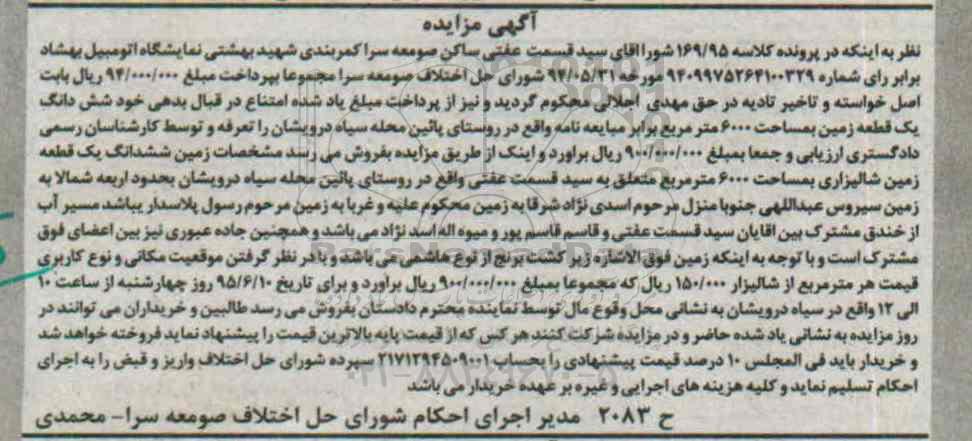 آگهی مزایده
نظر به اینکه در پرونده کلاسه ۱۶۹/۹۵ شورا اقای سید قسمت عفتی ساکن صومعه سرا کمربندی شهید بهشتی نمایشگاه اتومبیل بهشاد
برابر رای شماره ۹۴۰۹۹۷۵۲۶۴۱۰۰۳۲۹ مورخه ۹۴/۰۵/۳۱ شورای حل اختلاف صومعه سرا مجموعا بپرداخت مبلغ ۹۴/۰۰۰/۰۰۰ ریال بابت
اصل خواسته و تاخیر تادیه در حق مهدی اجلالی محکوم گردید و نیز از پرداخت مبلغ یاد شده امتناع در قبال بدهی خود شش دانگ
یک قطعه زمین بمساحت ۶۰۰۰ متر مربع برابر مبایعه نامه واقع در روستای پائین محله سیاه درویشان را تعرفه و توسط کارشناسان رسمی
دادگستری ارزیابی و جمعا بمبلغ ۹۰۰/۰۰۰/۰۰۰ ریال براورد و اینک از طریق مزایده بفروش می رسد مشخصات زمین ششدانگ یک قطعه
زمین شالیزاری بمساحت ۶۰۰۰ مترمربع متعلق به سید قسمت عفتی واقع در روستای پائین محله سیاه درویشان بحدود اربعه شمالا به
زمین سیروس عبداللهی جنوبا منزل مرحوم اسدی نژاد شرقا به زمین محکوم علیه و غربا به زمین مرحوم رسول پلاسدار یباشد مسیر آب
از خندق مشترک بین اقایان سید قسمت عفتی و قاسم قاسم پور و میوه اله اسد نژاد می باشد و همچنین جاده عبوری نیز بین اعضای فوق
مشترک است و با توجه به اینکه زمین فوق الاشاره زیر کشت برنج از نوع هاشمی می باشد و با در نظر گرفتن موقعیت مکانی و نوع کاربری
قیمت هر مترمربع از شالیزار ۱۵۰/۰۰۰ ریال که مجموعا بمبلغ ۹۰۰/۰۰۰/۰۰۰ ریال براورد و برای تاریخ ۹۵/۶/۱۰ روز چهارشنبه از ساعت ۱۰
الی ۱۲ واقع در سیاه درویشان به نشانی محل وقوع مال توسط نماینده محترم دادستان بفروش می رسد طالبین و خریداران می توانند در
روز مزایده به نشانی یاد شده حاضر و در مزایده شرکت کنند هر کس که از قیمت پایه بالاترین قیمت را پیشنهاد نماید فروخته خواهد شد
و خریدار باید فی المجلس ۱۰ درصد قیمت پیشنهادی را بحساب ۲۱۷۱۲۹۴۵۰۹۰۰۱ سپرده شورای حل اختلاف واریز و قبض را به اجرای
احکام تسلیم نماید و کلیه هزینه های اجرایی و غیره بر عهده خریدار می باشد
ح ۲۰۸۳ مدیر اجرای احکام شورای حل اختلاف صومعه سرا– محمدی